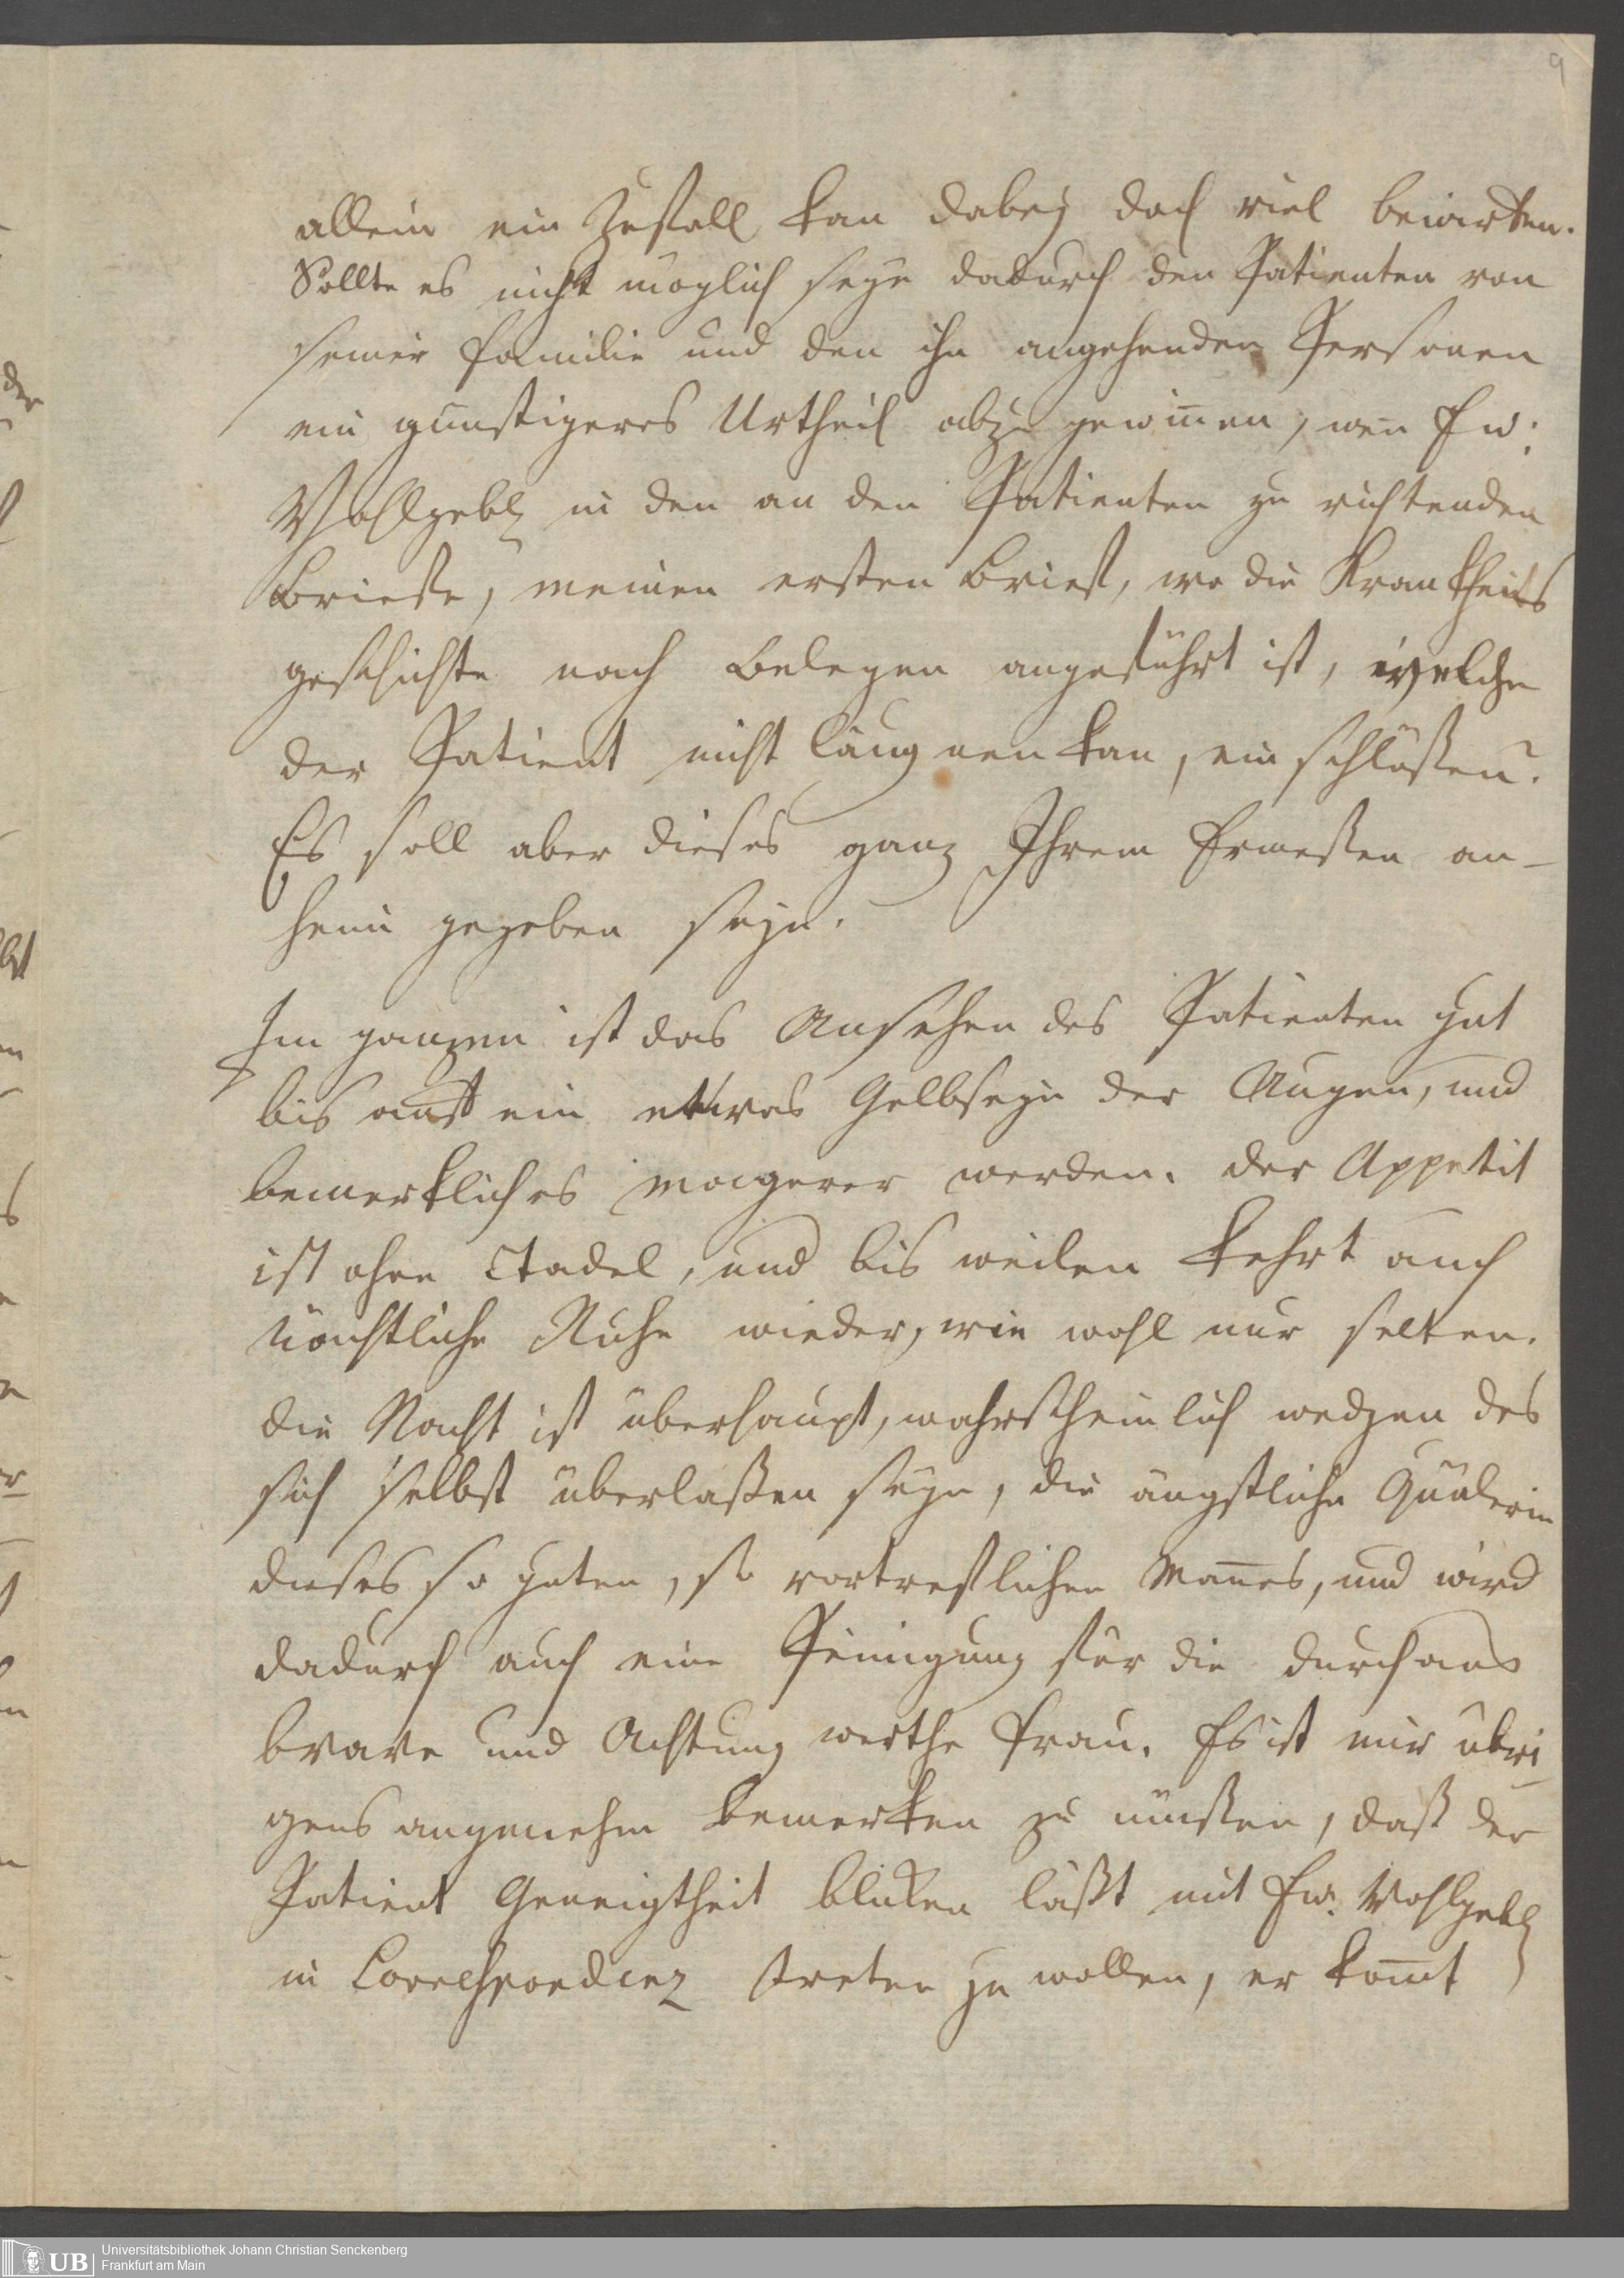 9
allein ein Zufall kan dabey doch viel bewirken.
Sollte es nicht möglich seyn dadurch den Patienten von
seiner Familie und den ihn angehenden Personen
ein günstigeres Urtheil abzugewinnen, wen Ew:
Wohlgebl in den an den Patienten zu richtenden
Briefe, meinen ersten Brief, wo die Krankheits
geschichte nach Belegen angeführt ist, welche
der Patient nicht läugnen kan, einschlößen?
Es soll aber dieses ganz Ihrem Ermeßen an-
heim gegeben seyn.
Im ganzen ist das Aussehen des Patienten gut
bis auf ein etwas Gelbseyn der Augen, und
bemerkliches magerer werden. der Appetit
ist ohne Tadel, und bisweilen kehrt auch
nächtliche Ruhe wieder, wie wohl nur selten.
die Nacht ist überhaupt, wahrscheinlich wegen des
sich selbst überlaßen seyn, die ängstliche Quälerin
dieses so guten, so vortreflichen Mañes, und wird
dadurch auch eine Peinigung für die durchaus
brave und Achtung werthe Frau. Es ist mir übri
gens angenehm bemerken zu müßen, daß der
Patient Geneigtheit bliken läßt mit Ew. Wohlgebl
in Correspondenz treten zu wollen, er kom̄t
Universitätsbibliothek Johann Christian Senckenberg
Frankfurt am Main
UB